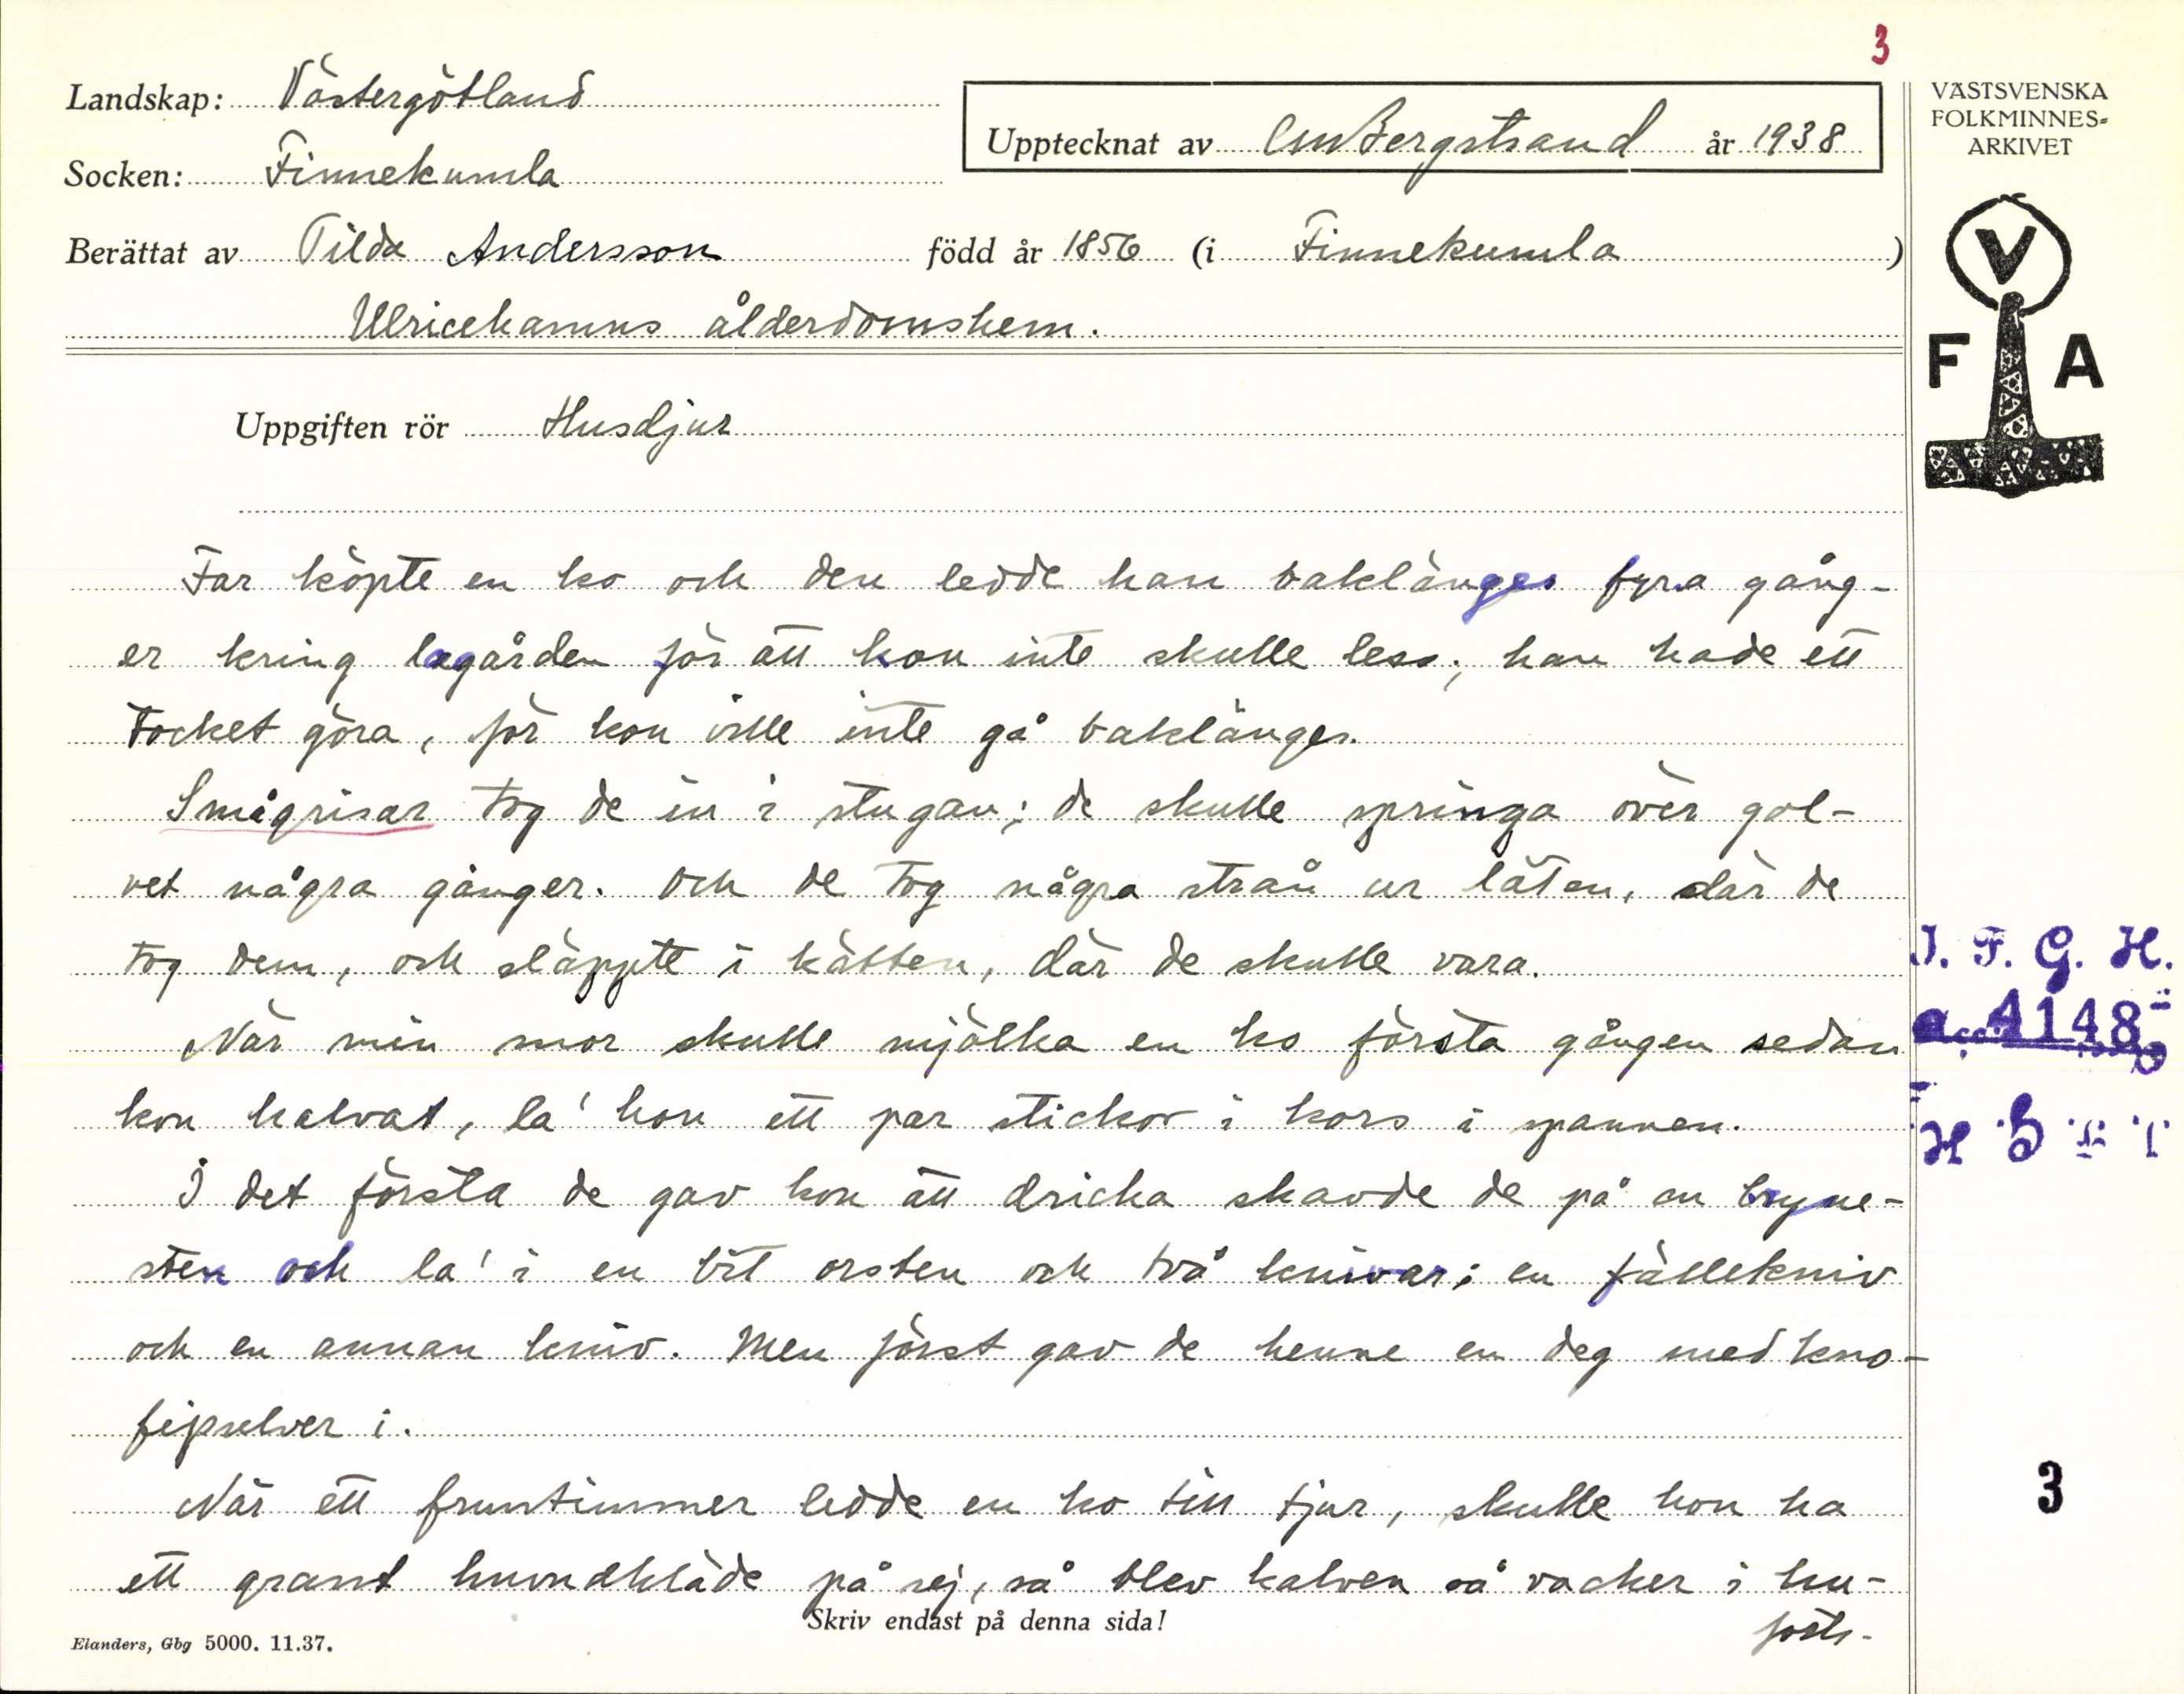 3
Landskap: Västergötland
Upptecknat av CMBergstrand år 1938
VÄSTSVENSKA
FOLKMINNES-
ARKIVET
Socken: Finnekumla
Berättat av Tilda Andersson född år 1856 (i Finnekumla)
Ulricehamns ålderdomshem.
V
F A
Uppgiften rör Husdjur
Far köpte en ko och den ledde han baklänges fyra gång-
er kring lagården för att kon inte skulle less; han hade ett
tocket göra, för kon ville inte gå baklänges.
Smågrisar tog de in i stugan; de skulle springa över gol-
vet några gånger. Och de tog några strån ur läten, där de
tog dem, och släppte i kätten, där de skulle vara.
När min mor skulle mjölka en ko första gången sedan
kon kalvat, la' hon ett par stickor i kors i spannen.
I det första de gav kon att dricka skavde de på en bryne-
sten och la' i en bit orsten och två knivar; en fällekniv
och en annan kniv. Men först gav de henne en deg med kno-
fipselver i.
När ett fruntimmer ledde en ko till tjur, skulle hon ha
ett grant huvudkläde på sej, så blev kalven så vacker i hu-
Skriv endast på denna sida!
forts.
Elanders, Gbg 5000. 11.37.
I. F. G. H.
4148
3